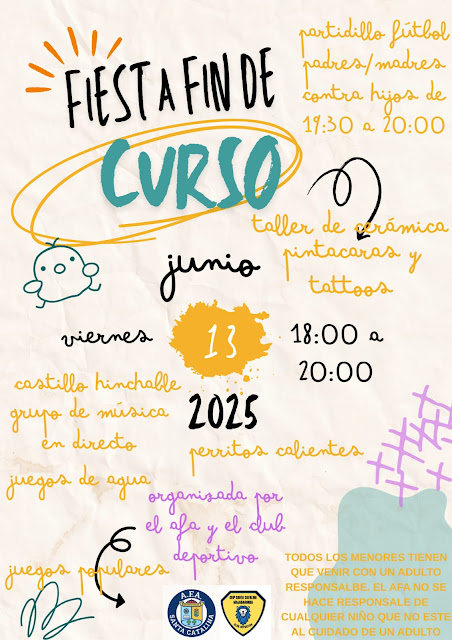 partidillo fútbol
padres/madres
contra hijos de
19:30 a 20:00
FIESTA FIN DE
CURSO
taller de cerámica
pintacaras y
tattoos
junio
viernes
13
18:00 a
20:00
2025
castillo hinchable
grupo de música
en directo
juegos de agua
perritos calientes
organizada por
el afa y el club
deportivo
juegos populares
A.F.A.
SANTA CATALINA
TODOS LOS MENORES TIENEN
QUE VENIR CON UN ADULTO
RESPONSALBE. EL AFA NO SE
HACE RESPONSALE DE
CUALQUIER NIÑO QUE NO ESTE
AL CUIDADO DE UN ADULTO